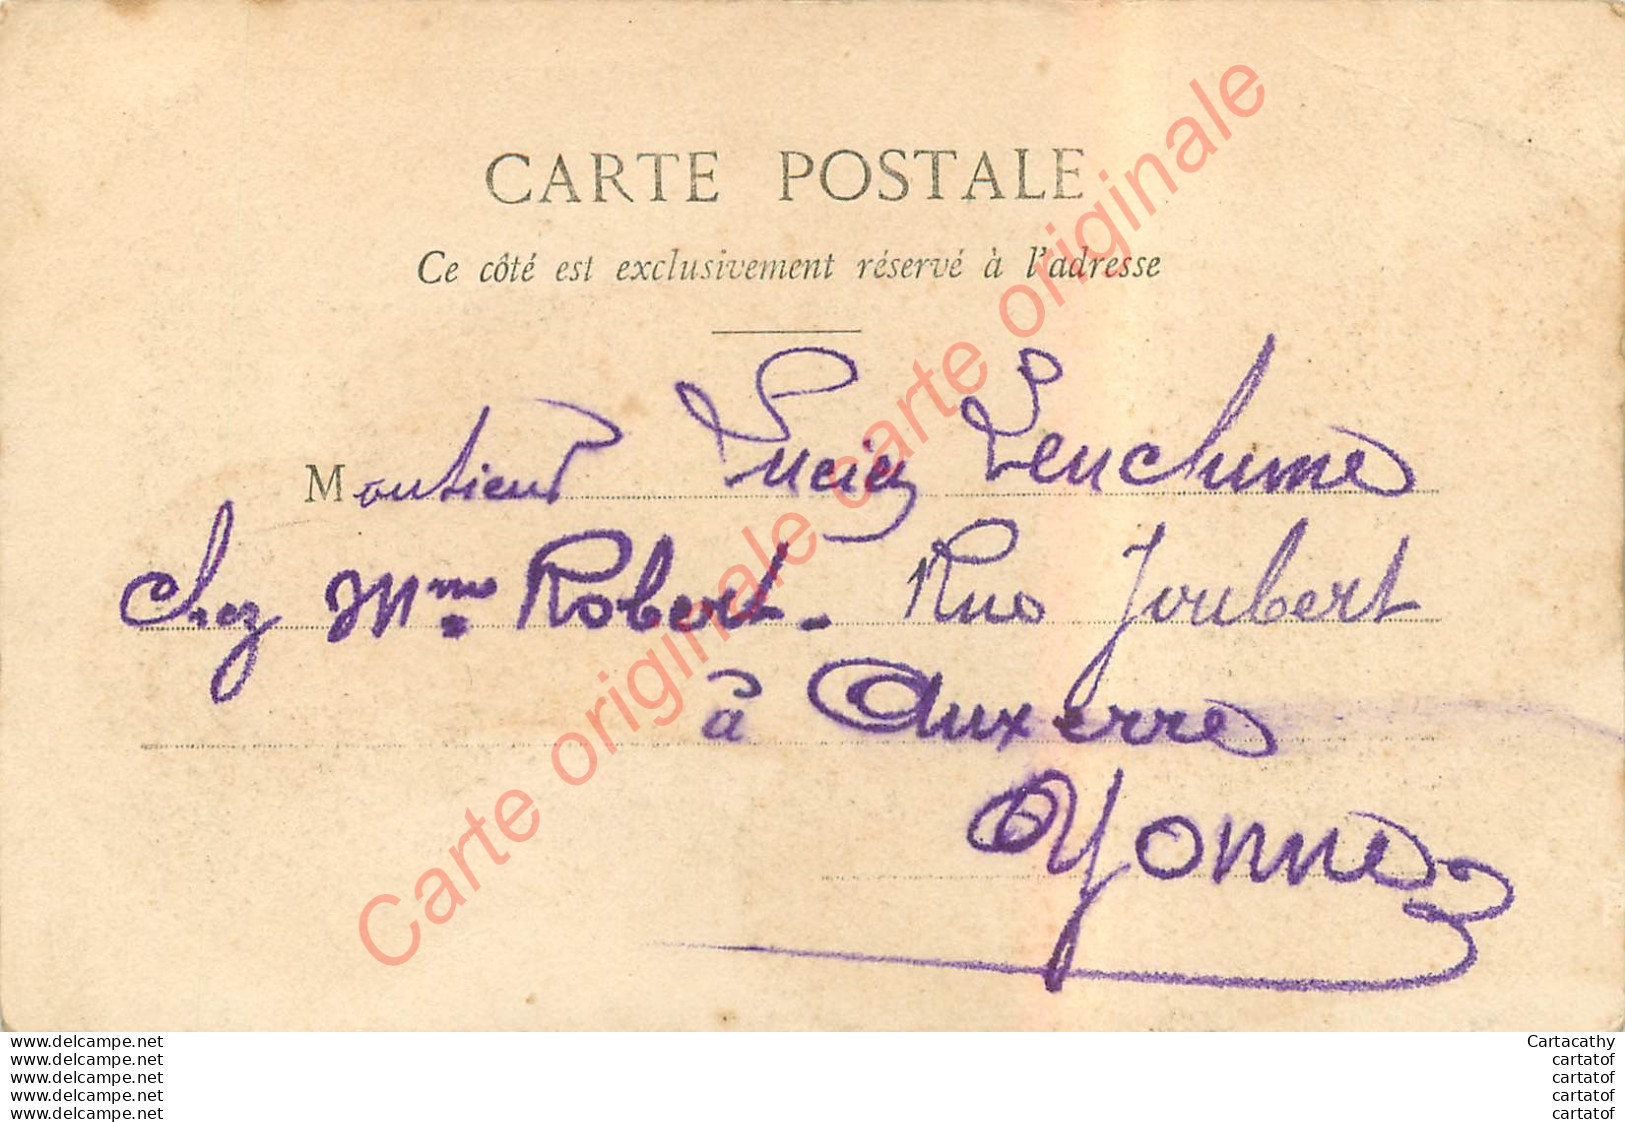 CARTE POSTALE
Ce côté est exclusivement réservé à l'adresse
Monsieur Lucien
Chez Mme Robert. Rue Joubert
à Auxerre
Yonne
Carte originale carte originale carte originale
www.delcampe.net
www.delcampe.net
www.delcampe.net
www.delcampe.net
www.delcampe.net
Cartacathy
cartatof
cartatof
cartatof
cartatof